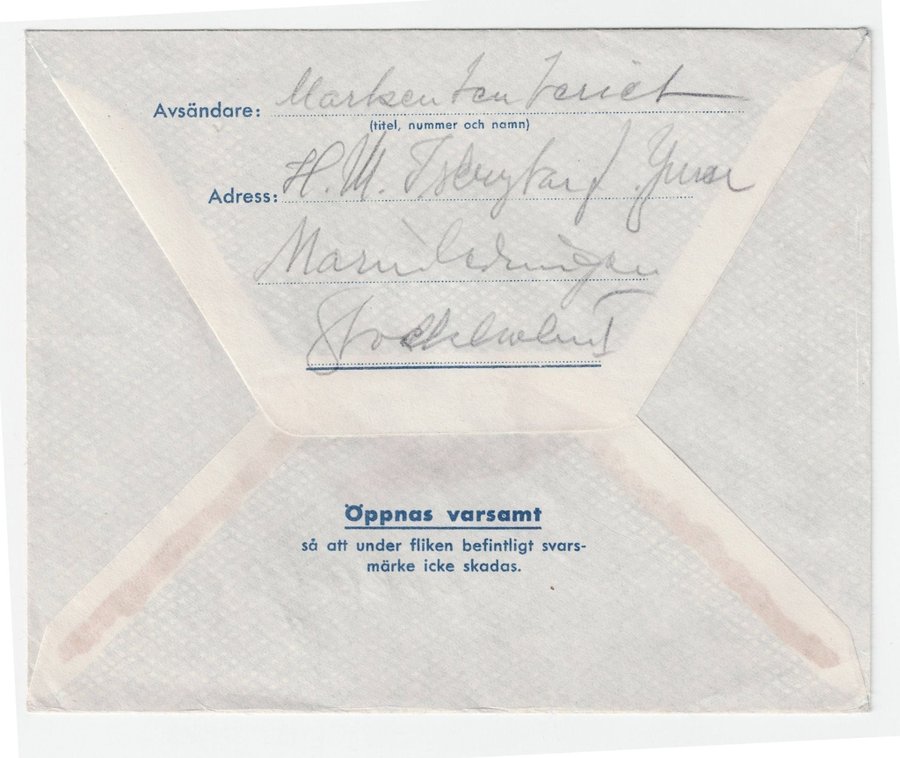 Avsändare: Marketenteriet
(titel, nummer och namn)
Adress: H.M. Isbrytarf. Ymer
Marinledningen
Stockholm
Öppnas varsamt
så att under fliken befintligt svars-
märke icke skadas.